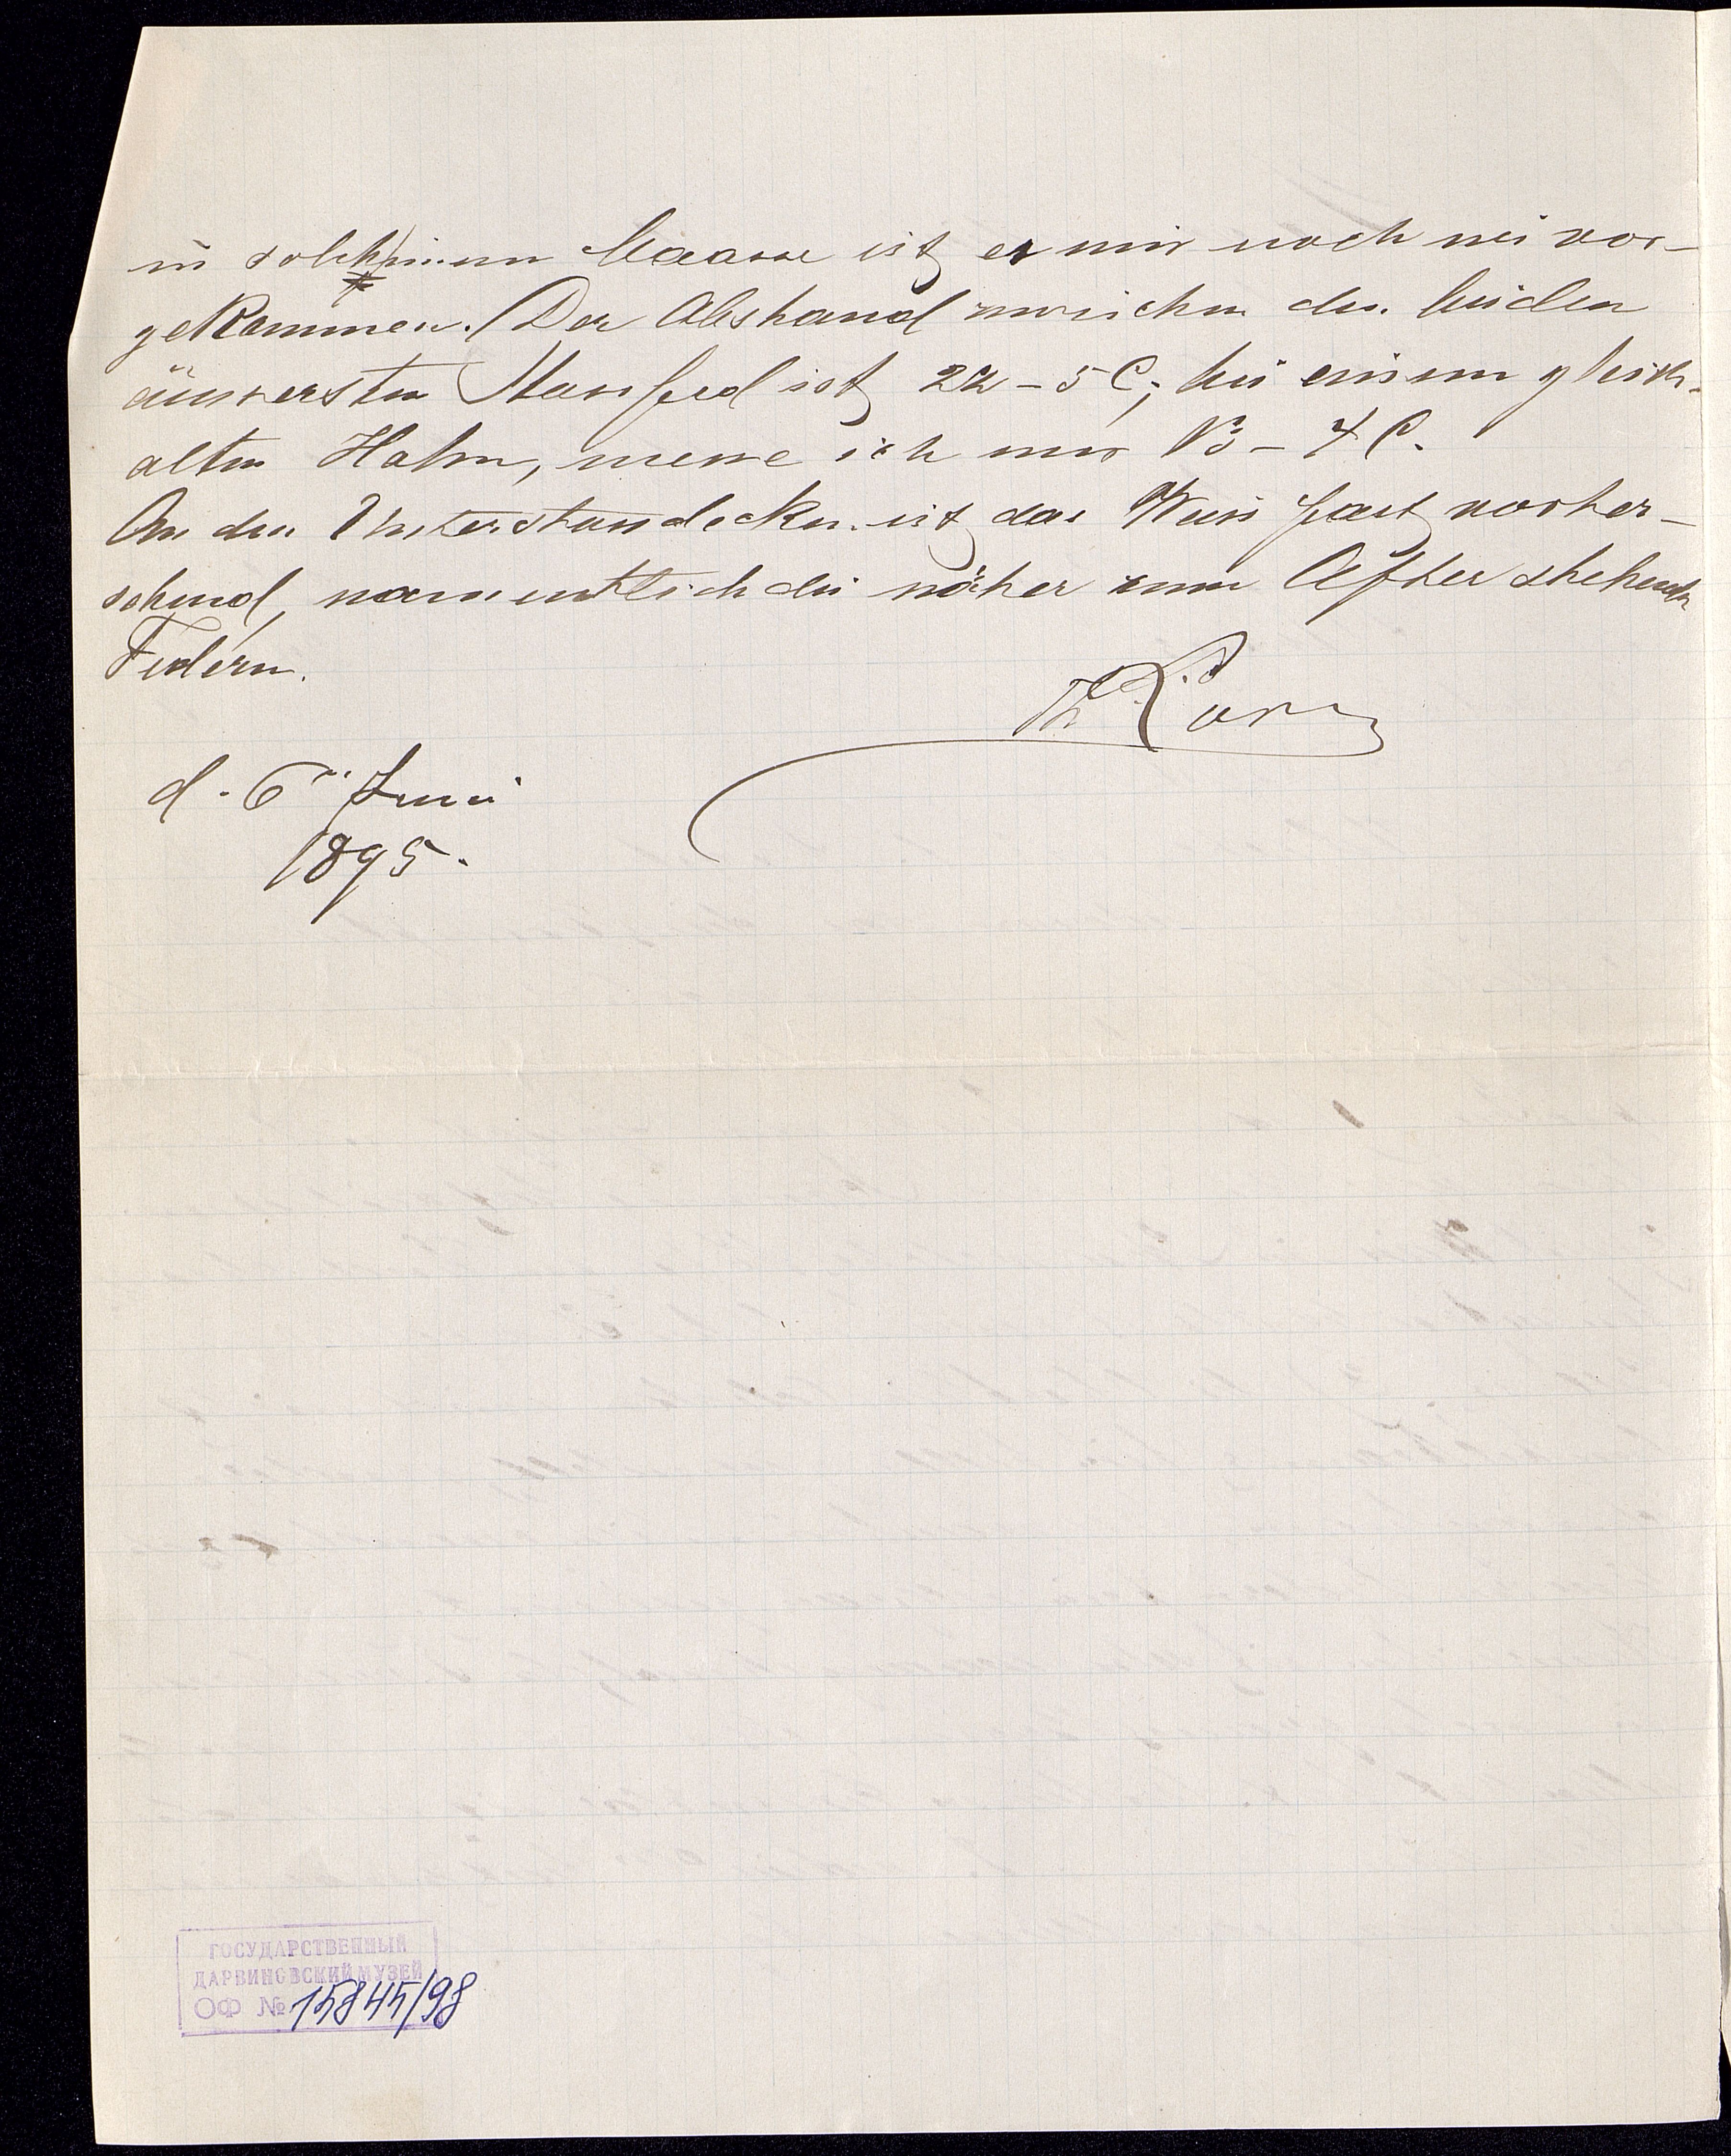 in solch einem Maasse ist es mir noch nie vor-
gekommen. Der Abstand zwischen den beiden
äussersten Stossfed ist 22 - 5 C; bei einem gleich-
alten Hahn, messe ich nur 13 - 7 C.
An den Unterstossdecken ist das Weiss fast vorher-
schend, namentlich die näher zum After stehenden
Federn.
Th Lorenz
d. 6" Juni
1895.
ГОСУДАРСТВЕННЫЙ
ДАРВИНОВСКИЙ МУЗЕЙ
ОФ № 15845/98